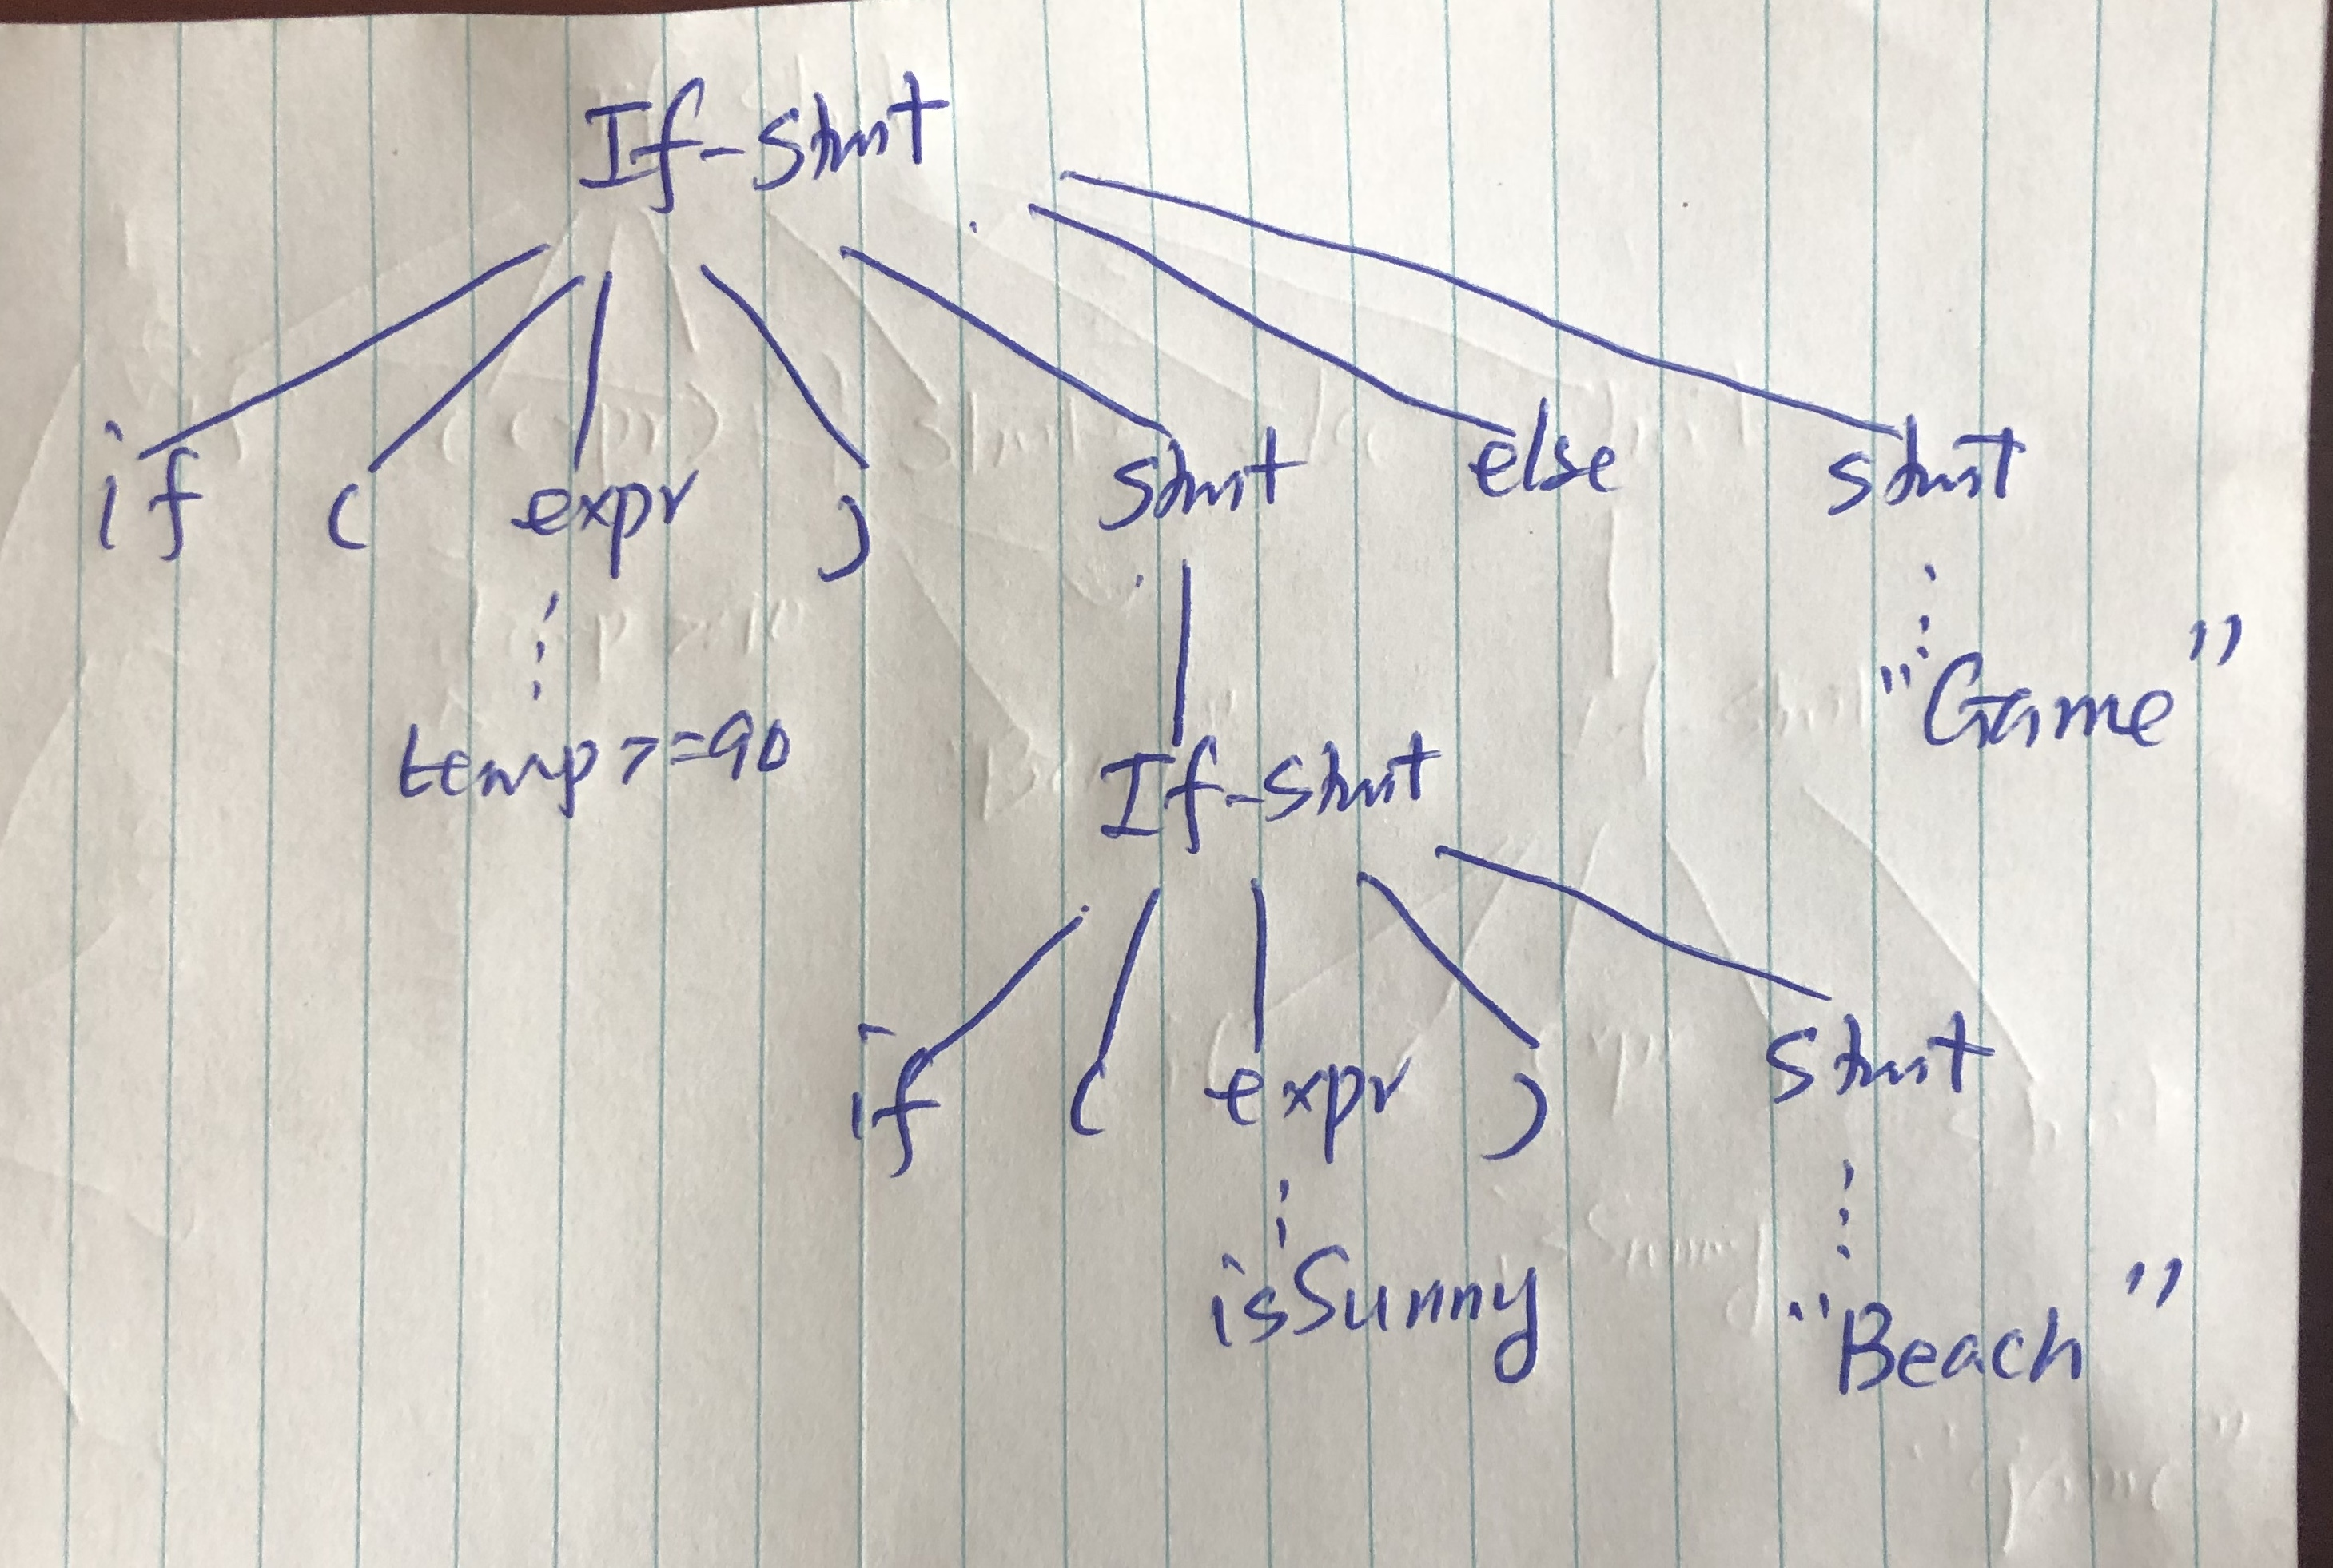 If-Stmt
if ( expr ) stmt else stmt
temp>=90
"Game"
If-Stmt
if ( expr ) Stmt
isSunny
"Beach"